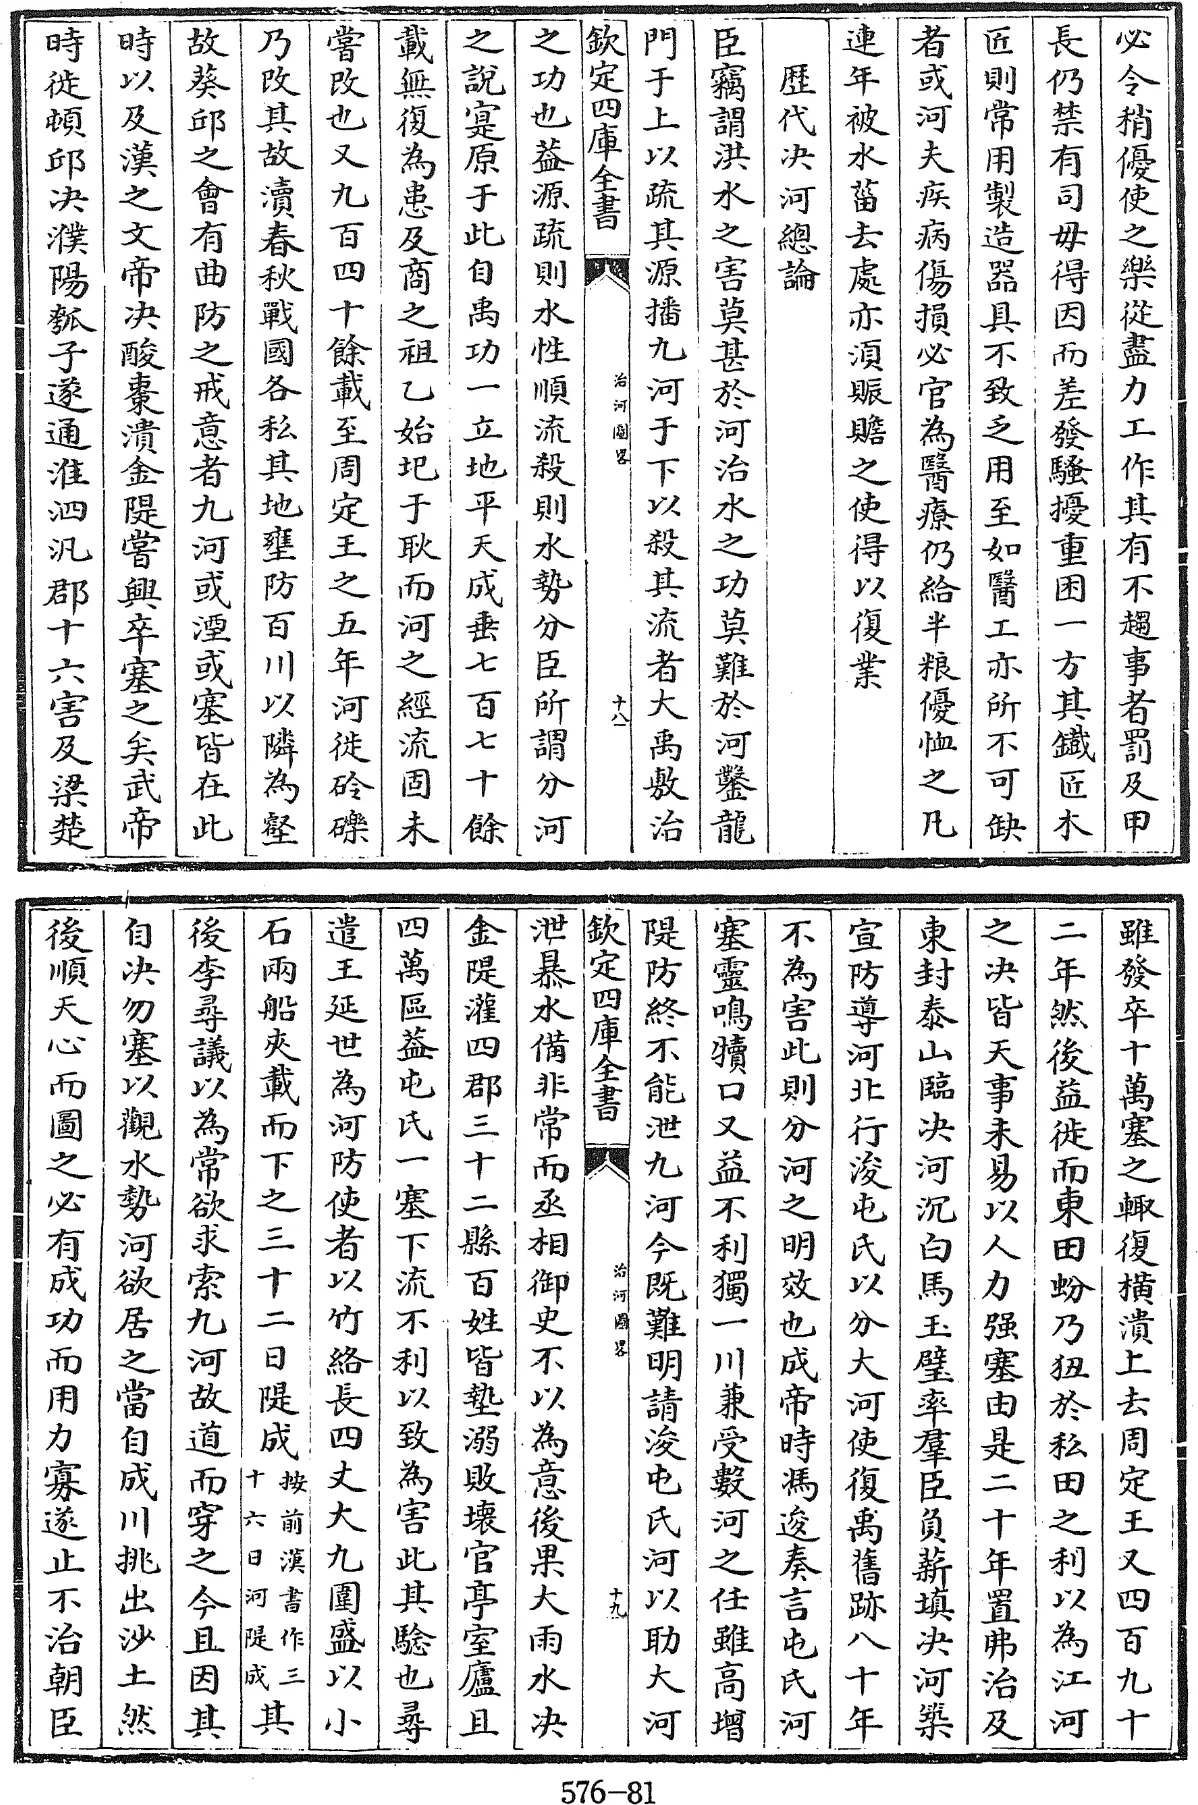 必令稍優使之樂從盡力工作其有不趨事者罰及甲
長仍禁有司毋得因而差發騷擾重困一方其鐵匠木
匠則常用製造器具不致乏用至如醫工亦所不可缺
者或河夫疾病傷損必官為醫療仍給半粮優恤之凡
連年被水菑去處亦須賑贍之使得以復業
歷代决河總論
臣竊謂洪水之害莫甚於河治水之功莫難於河鑿龍
門于上以疏其源播九河于下以殺其流者大禹敷治
欽定四庫全書
治河圖畧
十八
之功也葢源疏則水性順流殺則水勢分臣所謂分河
之說寔原于此自禹功一立地平天成垂七百七十餘
載無復為患及商之祖乙始圮于耿而河之經流固未
嘗改也又九百四十餘載至周定王之五年河徙砱礫
乃改其故瀆春秋戰國各私其地壅防百川以隣為壑
故葵邱之會有曲防之戒意者九河或湮或塞皆在此
時以及漢之文帝决酸棗潰金隄嘗興卒塞之矣武帝
時徙頓邱决濮陽瓠子遂通淮泗汎郡十六害及梁楚
雖發卒十萬塞之輙復橫潰上去周定王又四百九十
二年然後益徙而東田蚡乃狃於私田之利以為江河
之决皆天事未易以人力强塞由是二十年置弗治及
東封泰山臨决河沉白馬玉璧率羣臣負薪填决河築
宣防導河北行浚屯氏以分大河使復禹舊跡八十年
不為害此則分河之明效也成帝時馮逡奏言屯氏河
塞靈鳴犢口又益不利獨一川兼受數河之任雖高增
隄防終不能泄九河今既難明請浚屯氏河以助大河
欽定四庫全書
治河圖畧
十九
泄暴水備非常而丞相御史不以為意後果大雨水决
金隄灌四郡三十二縣百姓皆墊溺敗壞官亭室廬且
四萬區葢屯氏一塞下流不利以致為害此其騐也尋
遣王延世為河防使者以竹絡長四丈大九圍盛以小
石兩船夾載而下之三十二日隄成按前漢書作三十六日河隄成其
後李尋議以為常欲求索九河故道而穿之今且因其
自决勿塞以觀水勢河欲居之當自成川挑出沙土然
後順天心而圖之必有成功而用力寡遂止不治朝臣
576-81